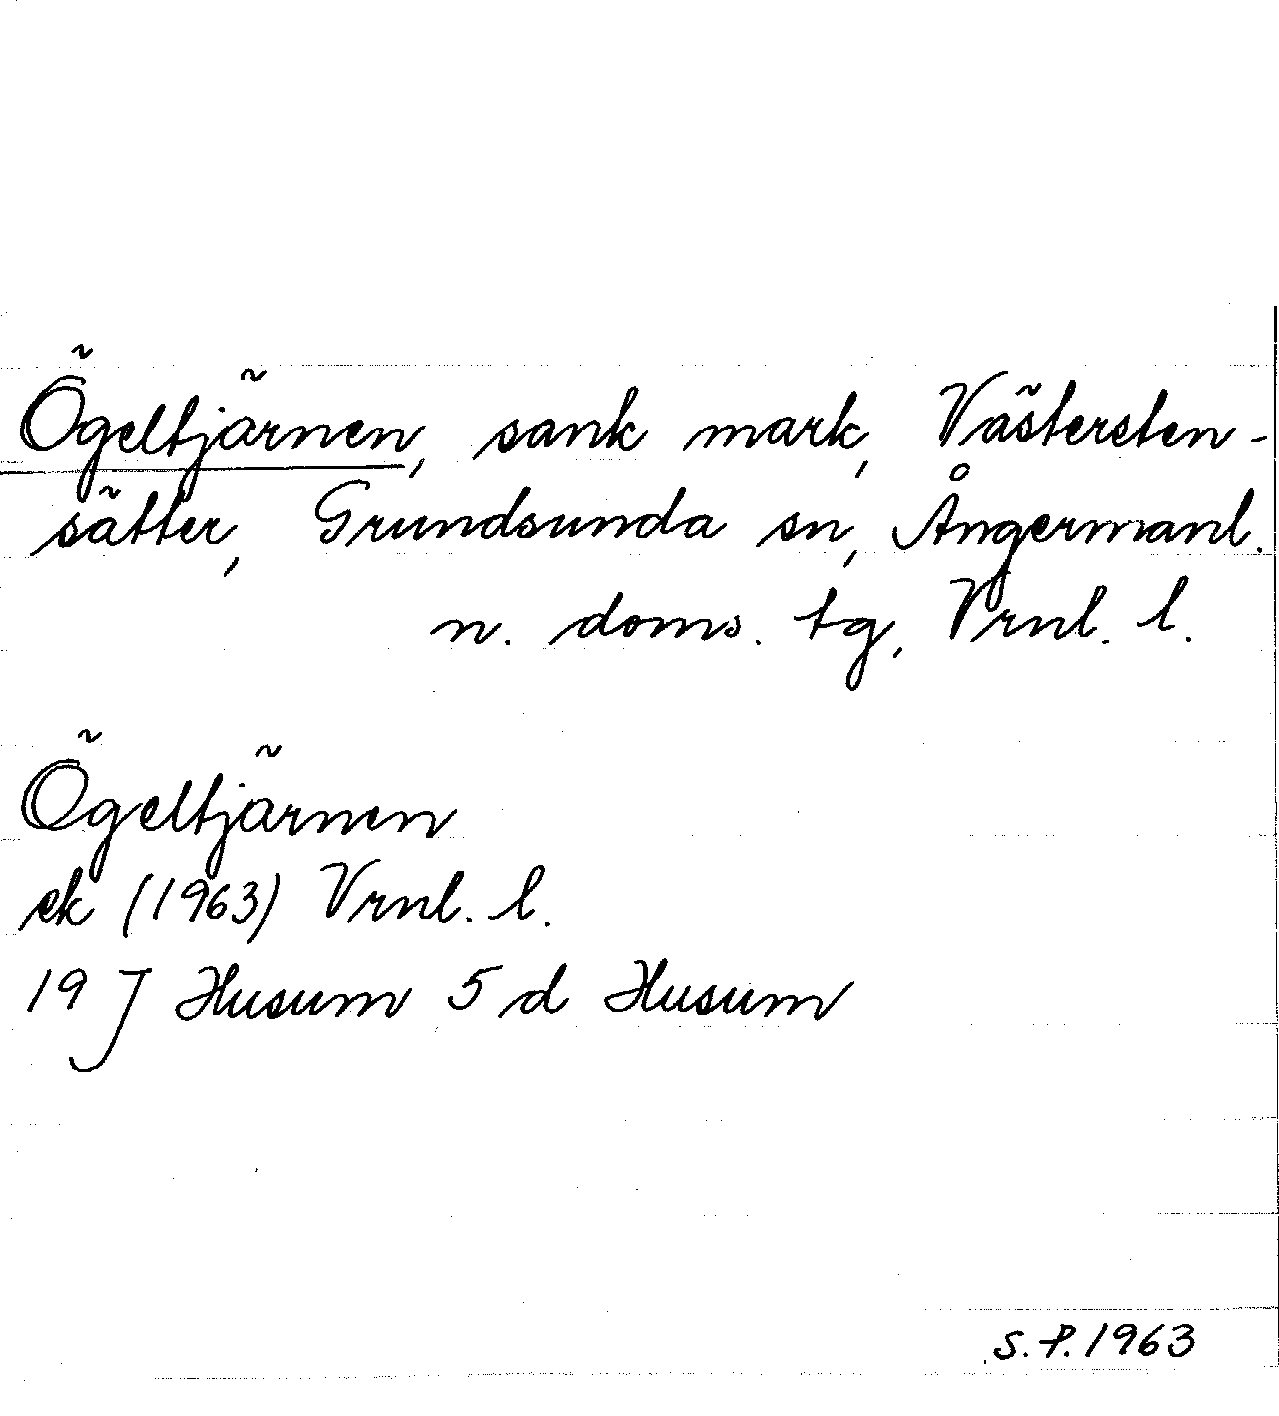 Ögeltjärnen, sank mark, Västersten-
sätter, Grundsunda sn, Ångermanl.
n. doms. tg, Vrnl. l.
Ögeltjärnen
ek (1963) Vrnl. l.
19 J Husum 5 d Husum
S.P. 1963